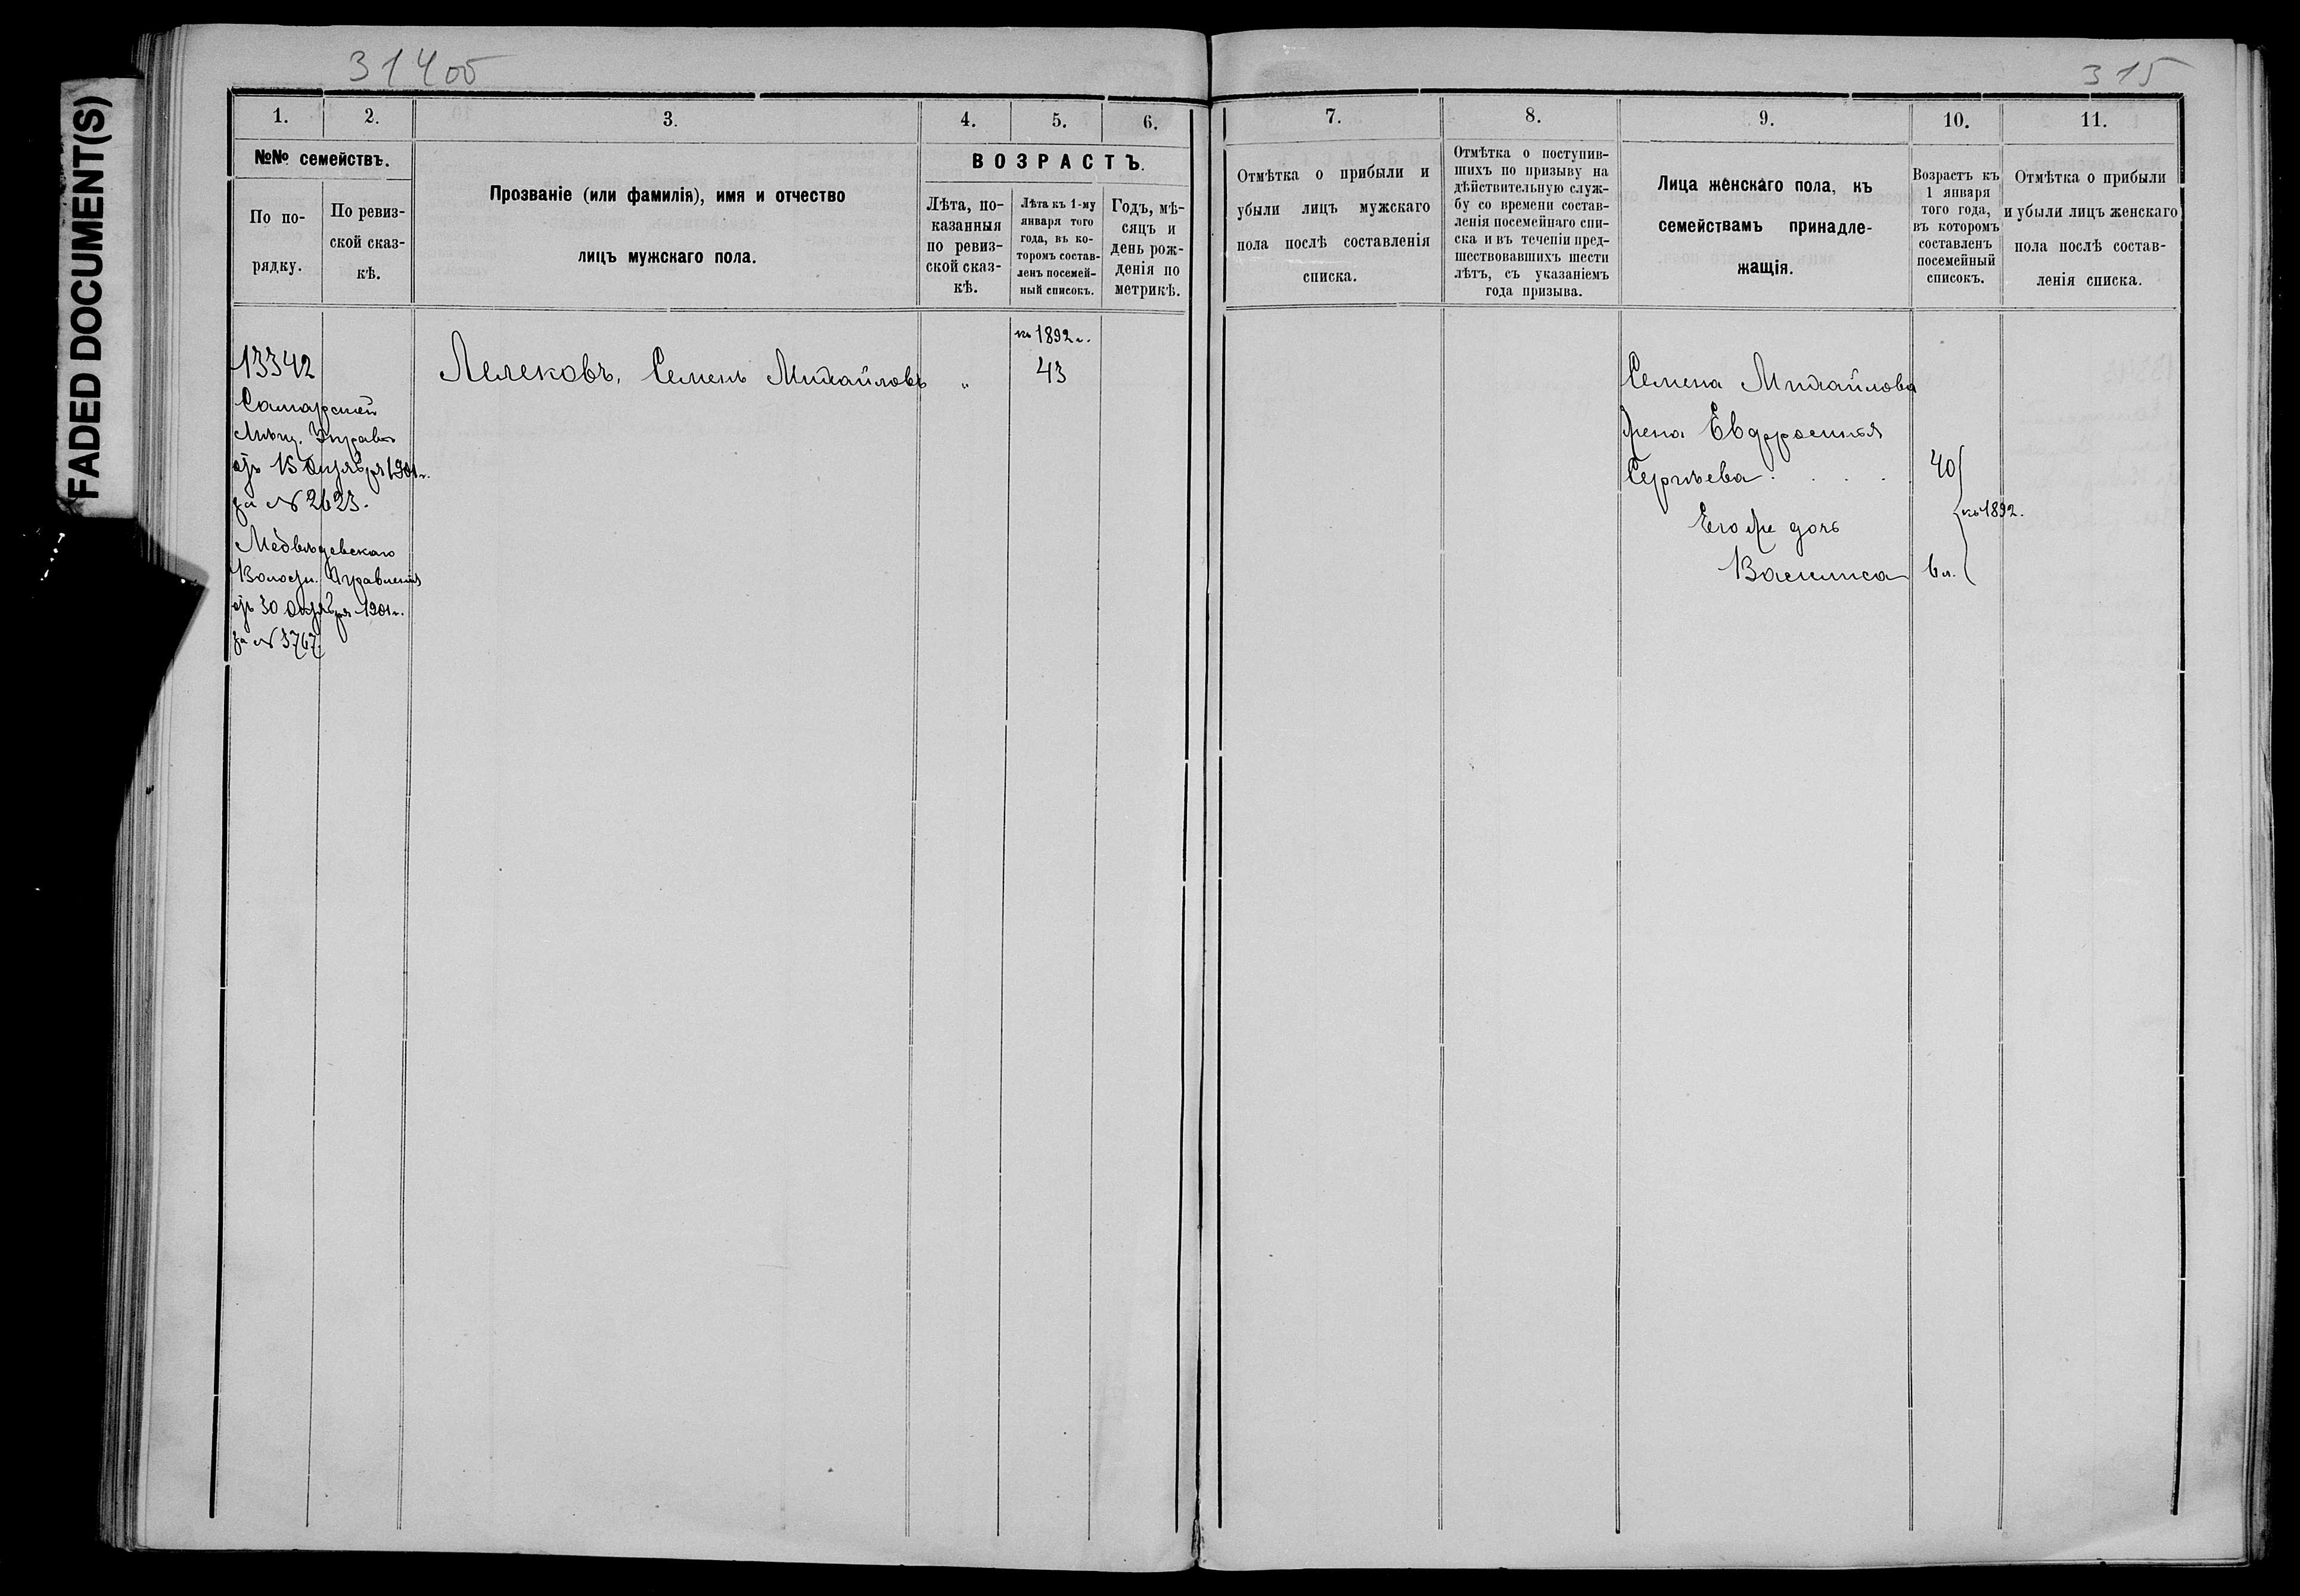 FADED DOCUMENT(S)
314об
315
1.
2.
3.
4.
5.
6.
№№ семействъ.
По по-
рядку.
По ревиз-
ской сказ-
кѣ.
Прозваніе (или фамилія), имя и отчество
лицъ мужскаго пола.
ВОЗРАСТЪ.
Лѣта, по-
казанныя
по ревиз-
ской сказ-
кѣ.
Лѣта къ 1-му
января того
года, въ ко-
торомъ состав-
ленъ посемей-
ный списокъ.
Годъ, мѣ-
сяцъ и
день рож-
денія по
метрикѣ.
13342
Самарской
Мѣщ. Управы
отъ 15 октября 1901 г.
за № 2623.
Медвѣдевскаго
Волостн. Правленія
отъ 30 октября 1901 г.
за № 3767.
Лелековъ, Семенъ Михайловъ
"
къ 1892 г.
43
7.
8.
9.
10.
11.
Отмѣтка о прибыли и
убыли лицъ мужскаго
пола послѣ составленія
списка.
Отмѣтка о поступив-
шихъ по призыву на
дѣйствительную служ-
бу со времени состав-
ленія посемейнаго спи-
ска и въ теченіи пред-
шествовавшихъ шести
лѣтъ, съ указаніемъ
года призыва.
Лица женскаго пола, къ
семействамъ принадле-
жащія.
Возрастъ къ
1 января
того года,
въ которомъ
составленъ
посемейный
списокъ.
Отмѣтка о прибыли
и убыли лицъ женскаго
пола послѣ состав-
ленія списка.
Семена Михайлова
жена Евдросинія
Сергѣева . . . . 40
къ 1892.
Его же дочь
Василиса 6 л.